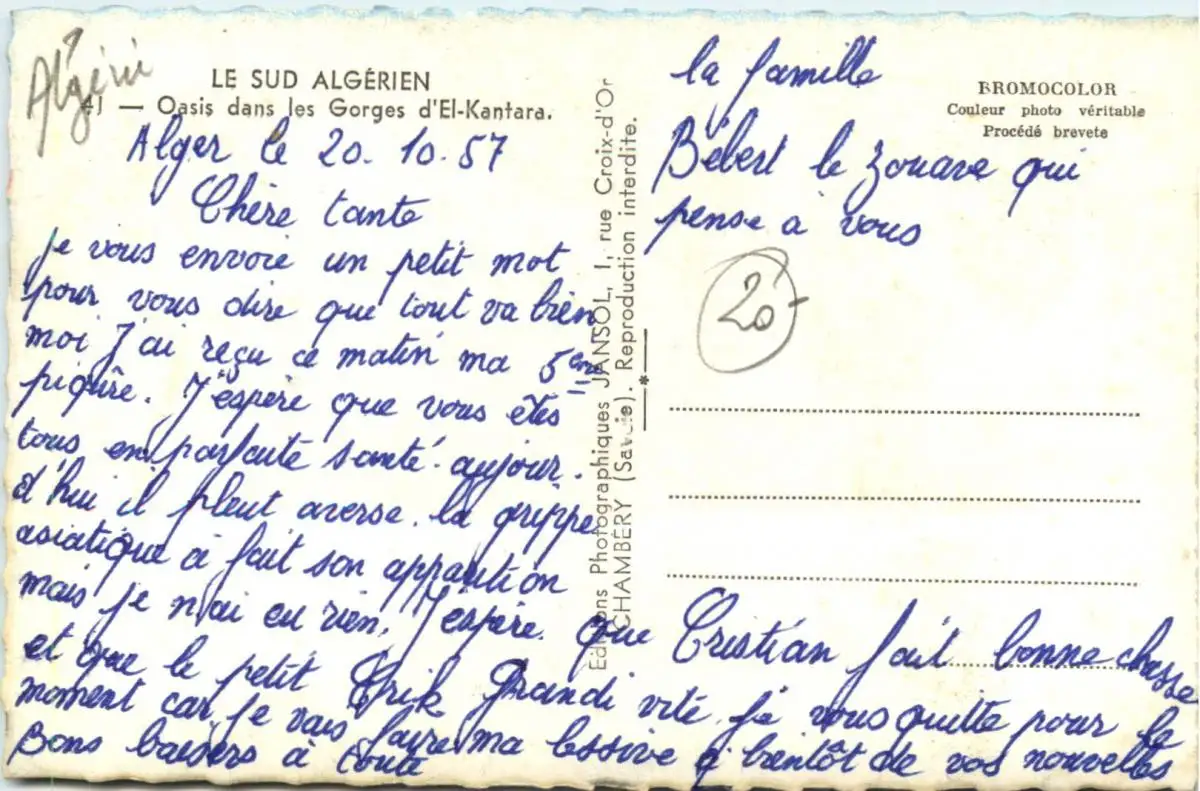 Algérie
LE SUD ALGÉRIEN
41 — Oasis dans les Gorges d'El-Kantara.
Alger le 20.10.57
Chère tante
je vous envoie un petit mot
pour vous dire que tout va bien
moi J'ai reçu ce matin ma 5ème
piqûre. J'espère que vous êtes
tous en parfaite santé. aujour.
d'hui il pleut averse. la grippe
asiatique à fait son apparution
mais je n'ai eu rien. J'espère que Cristian fait bonne chasse
et que le petit Erik Grandi vite. je vous quitte pour le
moment car je vais faire ma lessive a bientôt de vos nouvelles
Bons baisers à toute
la famille
Bébert le zouave qui
pense à vous
20-
BROMOCOLOR
Couleur photo véritable
Procédé brevete
Editions Photographiques JANSOL, 1, rue Croix-d'Or
CHAMBÉRY (Savoie). Reproduction interdite.